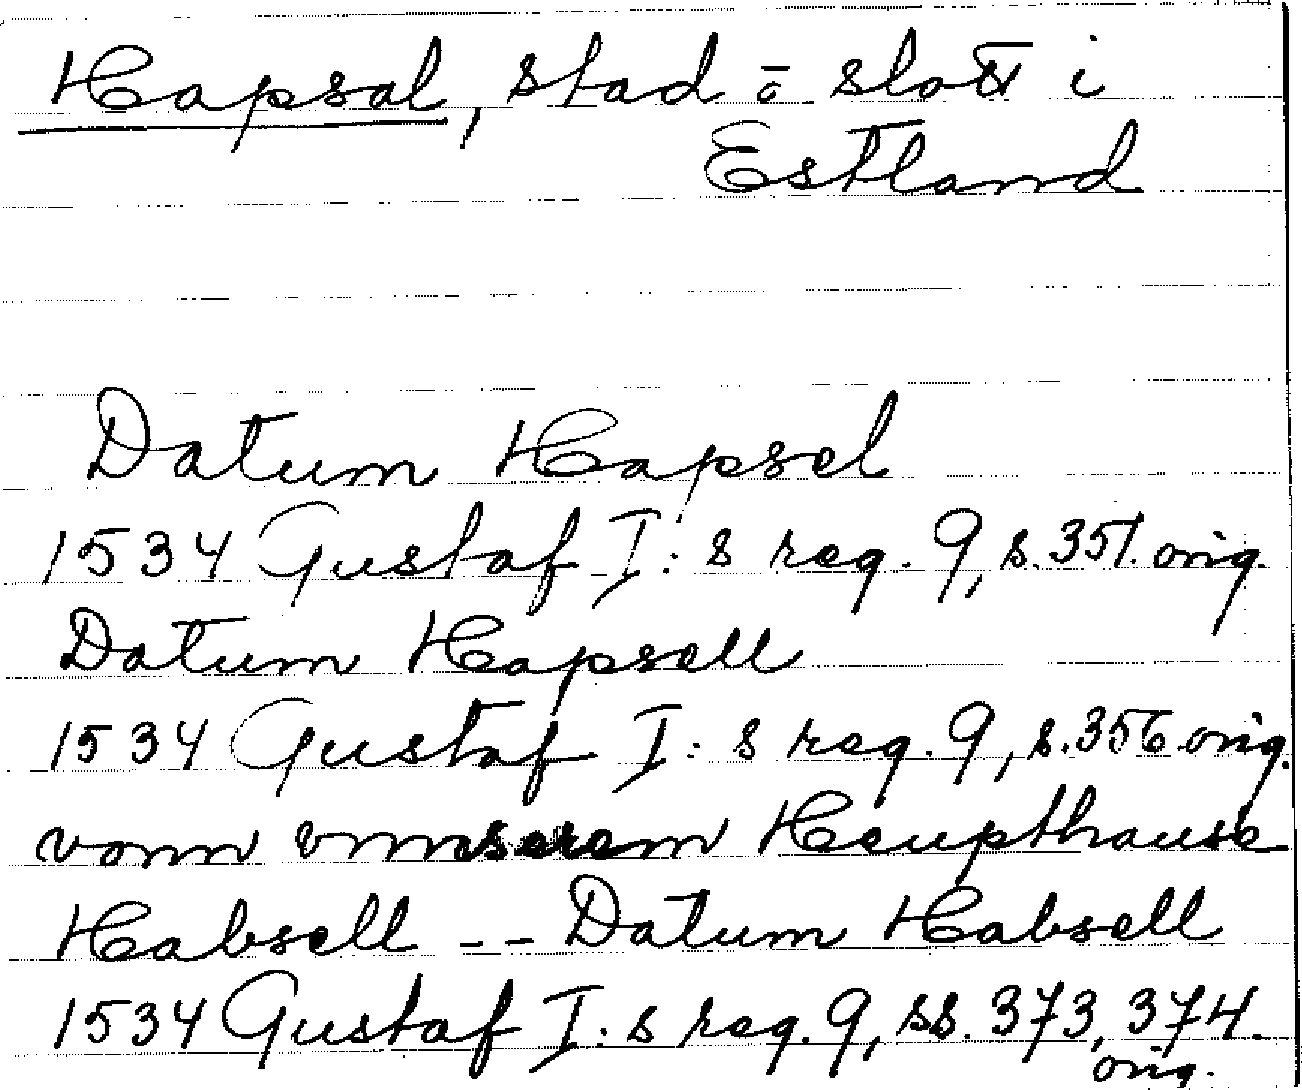 Hapsal, stad o slott i
Estland
Datum Hapsel
1534 Gustaf I:s reg. 9, s. 351. orig.
Datum Hapsell
1534 Gustaf I:s reg. 9, s. 356 orig.
vonn vnnserem Heupthause
Habsell -- Datum Habsell
1534 Gustaf I:s reg. 9, ss. 373, 374.
orig.